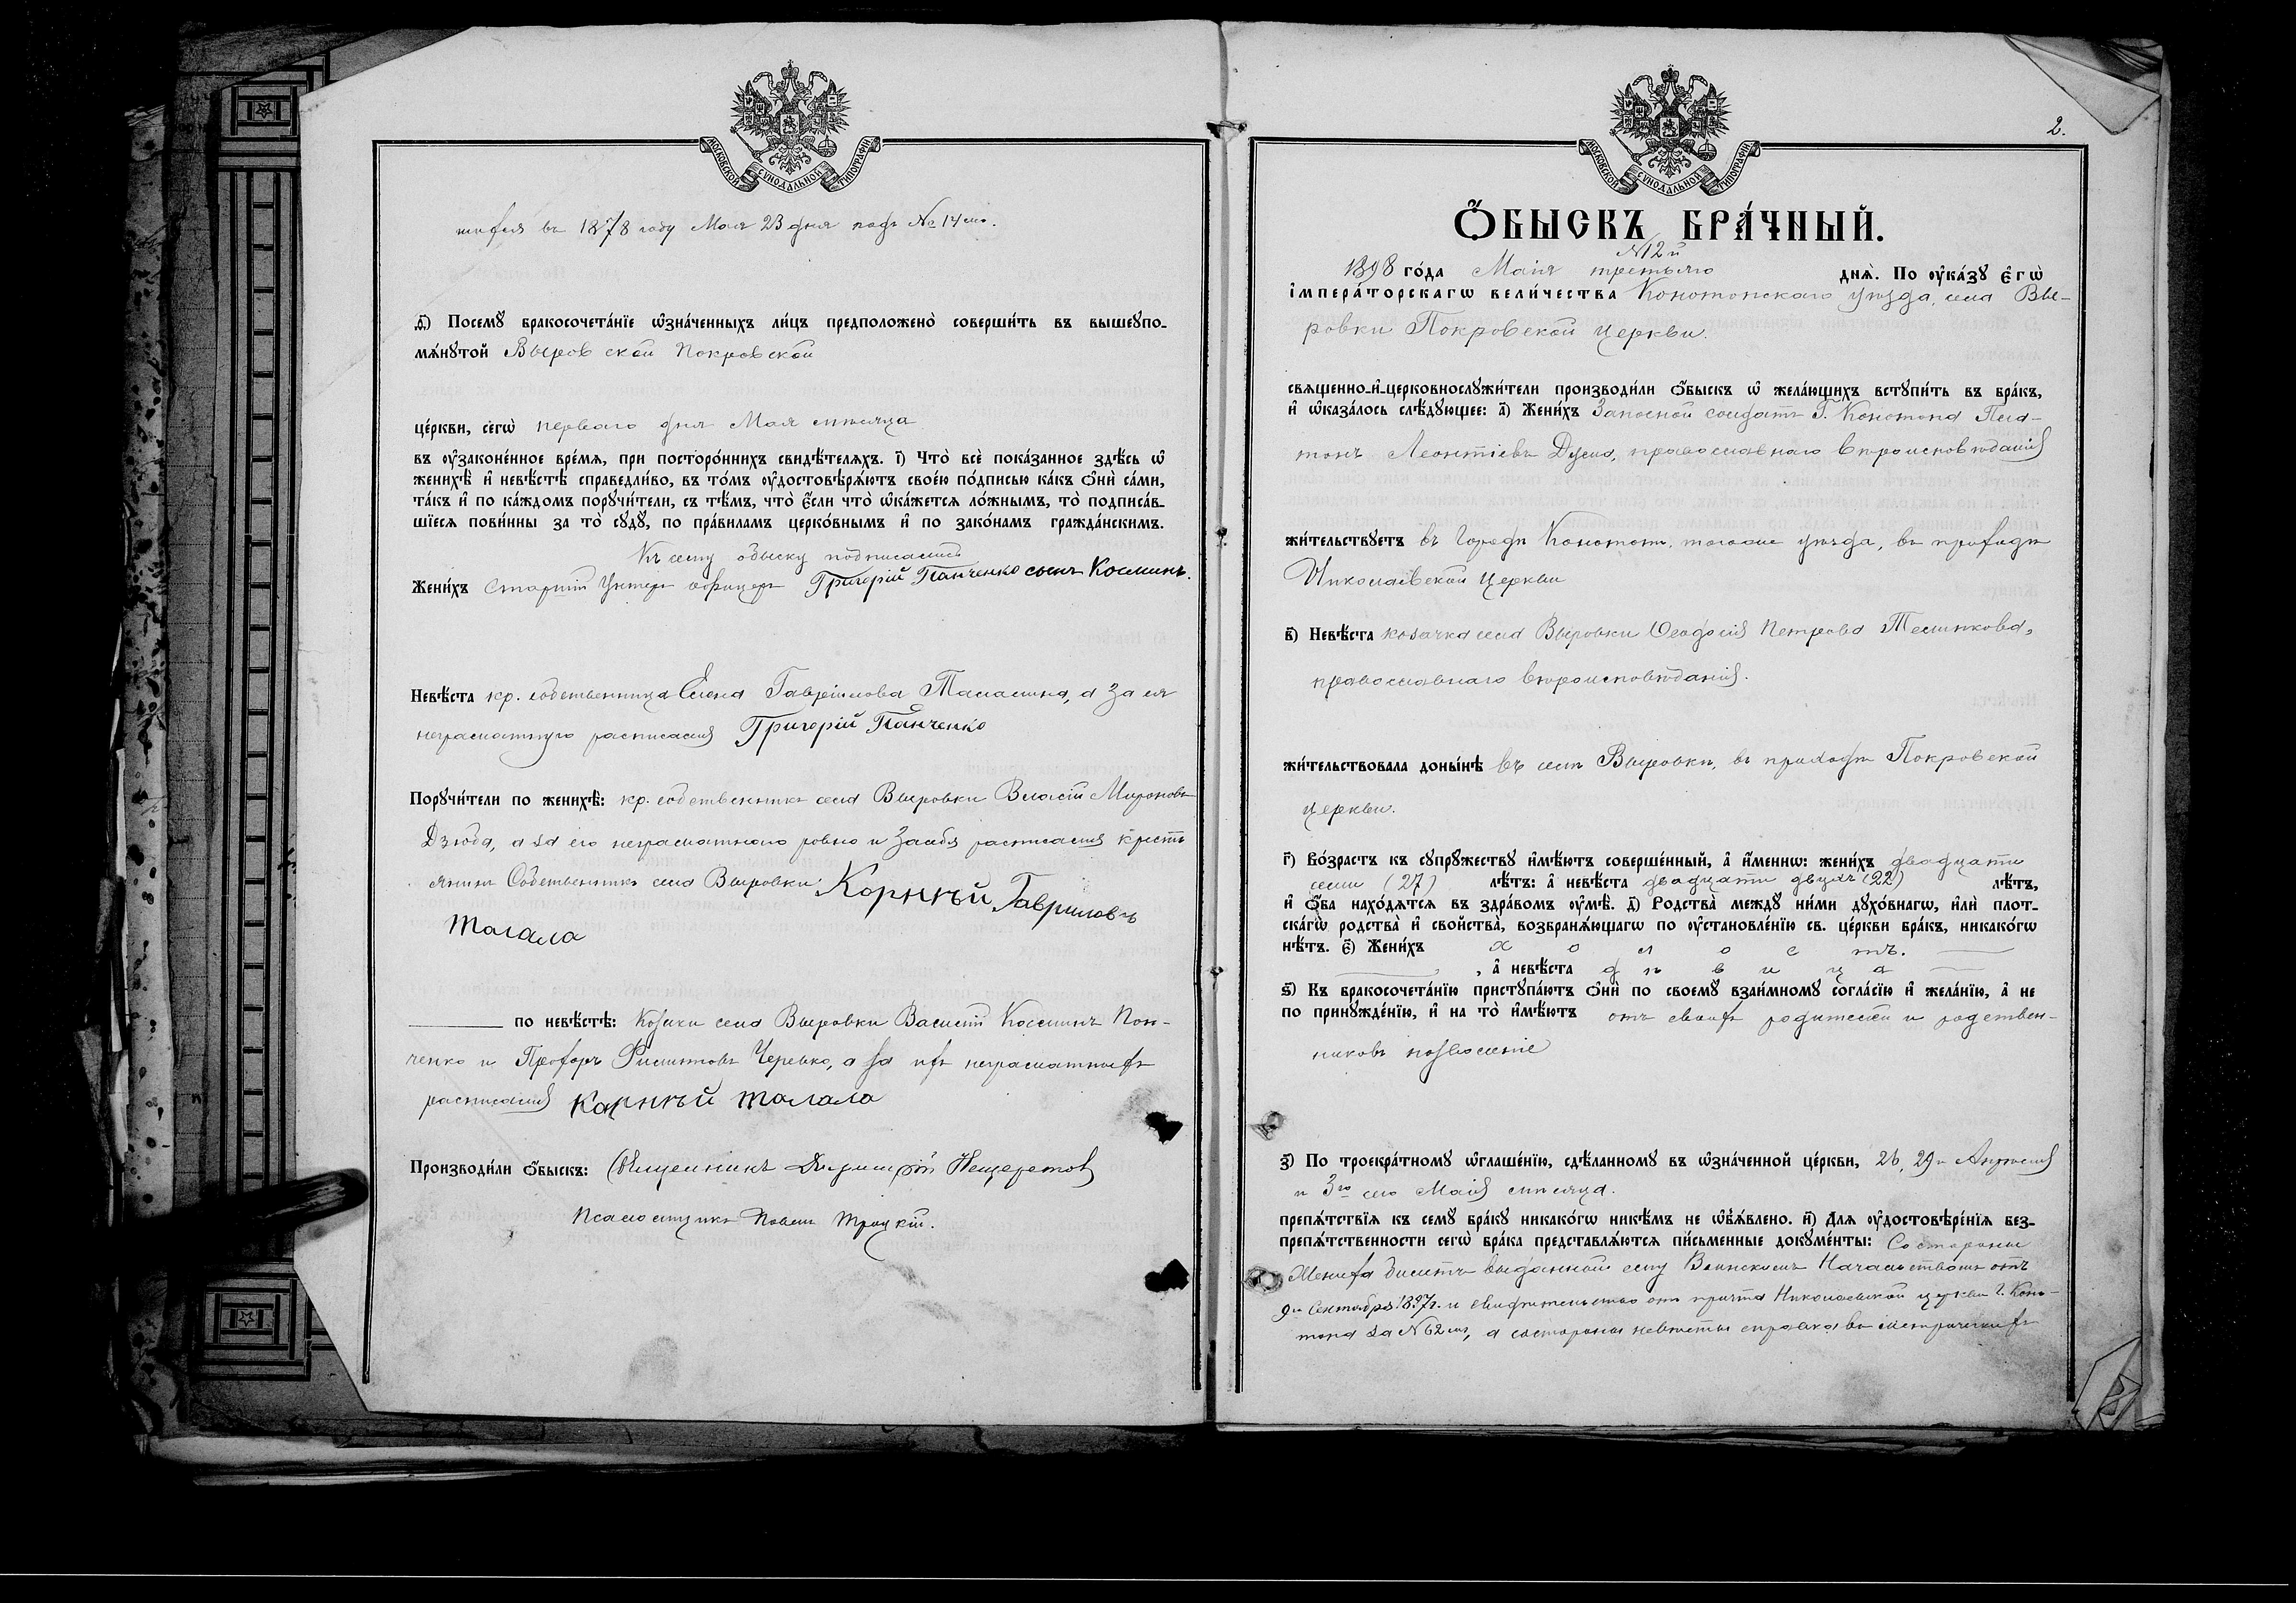 МОСКОВСКОЙ СѴНОДАЛЬНОЙ ТИПОГРАФІИ
тифея въ 1878 году Мая 23 дня подъ № 14мъ.
ѳ҃) Посемꙋ̀ бракосочета́нїе ѡ҆зна́ченныхъ ли́цъ предположено̀ соверши́ть въ вышеꙋпо-
мѧ́нꙋтой Выровской Покровской
це́ркви, сегѡ̀ перваго дня Мая мѣсяца
въ ᲂу҆законе́нное вре́мѧ, при посторо́ннихъ свидѣ́телѧхъ. і҃) Что̀ всѐ пока́занное здѣ́сь ѡ҆
женихѣ̀ и҆ невѣ́стѣ справедли́во, въ то́мъ ᲂу҆достовѣрѧ́ютъ свое́ю по́дписью ка́къ ѻ҆нѝ са́ми,
та́къ и҆ по ка́ждомъ порꙋчи́тели, съ тѣ́мъ, что̀ є҆́сли что̀ ѡ҆ка́жетсѧ ло́жнымъ, то̀ подписа́в-
шїесѧ пови́нны за то̀ сꙋдꙋ̀, по пра́виламъ церко́внымъ и҆ по зако́намъ гражда́нскимъ.
Къ сему обыску подписались
Жени́хъ Старшій Унтеръ офицеръ Григорій Панченко сынъ Косминъ.
Невѣ́ста кр. собственница Елена Гавріилова Талалина, а за ея
неграматную расписался Григорій Панченко
Порꙋчи́тели по женихѣ̀: кр. собственникъ села Выровки Власій Мироновъ
Дзюба, а за его неграматнаго ровно и за себя расписался кресть
янинъ Собственникъ села Выровки Корнѣй Гавриловъ
Талала
по невѣ́стѣ: Козаки села Выровки Василій Косминъ Пан-
ченко и Прохоръ Филиповъ Черевко, а за ихъ неграматныхъ
расписался Карнѣй Талала
Производи́ли ѻ҆́быскъ: Священникъ Димитрій Нещеретов
Псаломщикъ Павелъ Троцкій.
МОСКОВСКОЙ СѴНОДАЛЬНОЙ ТИПОГРАФІИ
2.
Ѻ҆́БЫСКЪ БРА́ЧНЫЙ.
№ 12й
1898 го́да Маія третьяго днѧ̀. По ᲂу҆ка́зꙋ є҆гѡ̀
і҆мпера́торскагѡ вели́чества Конотопскаго уѣзда, села Вы-
ровки Покровской церкви.
свѧщенно-и҆-церковнослꙋжи́тели производи́ли ѻ҆́быскъ ѡ҆ жела́ющихъ встꙋпи́ть въ бра́къ,
и҆ ѡ҆каза́лось слѣ́дꙋющее: а҃) Жени́хъ Запасной солдатъ Г. Конотопа Пла-
тонъ Леонтіевъ православнаго вѣроисповѣданія
жи́тельствꙋетъ въ Городѣ Конотопѣ, тогоже уѣзда, въ приходѣ
Николаевской церкви
в҃) Невѣ́ста козачка села Выровки Ѳеодосія Петрова
православнаго вѣроисповѣданія.
жи́тельствовала доны́нѣ въ селѣ Выровки, въ приходѣ Покровской
церкви.
г҃) Во́зрастъ къ сꙋпрꙋжествꙋ и҆мѣ́ютъ соверше́нный, а҆ и҆́менно: жени́хъ двадцати
семи (27) лѣ́тъ: а҆ невѣ́ста двадцати двухъ (22) лѣ́тъ,
и҆ ѻ҆́ба нахо́дѧтсѧ въ здра́вомъ ᲂу҆мѣ̀. д҃) Родства̀ междꙋ̀ ни́ми дꙋхо́внагѡ, и҆лѝ плот-
ска́гѡ родства̀ и҆ свойства̀, возбранѧ́ющагѡ по ᲂу҆становле́нїю св. це́ркви бра́къ, никако́гѡ
нѣ́тъ. є҃) Жени́хъ холостъ.
, а҆ невѣ́ста дѣвица
ѕ҃) Къ бракосочета́нїю пристꙋпа́ютъ ѻ҆нѝ по своемꙋ̀ взаи́мномꙋ согла́сїю и҆ жела́нїю, а҆ не
по принꙋжде́нїю, и҆ на то̀ и҆мѣ́ютъ отъ своихъ родителей и родствен-
никовъ позволеніе
з҃) По троекра́тномꙋ ѡ҆глаше́нїю, сдѣ́ланномꙋ въ ѡ҆зна́ченной це́ркви, 26, 29го Апрѣля
и 3го сего Маія мѣсяца.
препѧ́тствїѧ къ семꙋ̀ бра́кꙋ никако́гѡ никѣ́мъ не ѡ҆б̾ѧ́влено. и҃) Длѧ ᲂу҆достовѣре́нїѧ без-
препѧ́тственности сегѡ̀ бра́ка представлѧ́ютсѧ пи́сьменные докꙋме́нты: Со стороны
Жениха билетъ выданный ему Воинскимъ Начальствомъ отъ
9го Сентября 1897г. и свидѣтельство отъ причта Николаевской церкви г. Коно-
топа за № 62мъ, а со стороны невѣсты справка въ метрическихъ